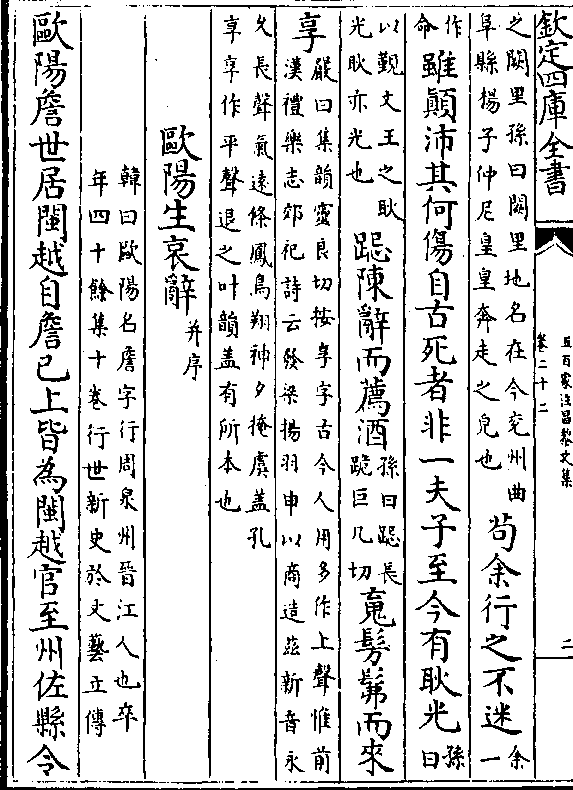 欽定四庫全書
五百家注昌黎文集
卷二十二
二
之闕里孫曰闕里地名在今兖州曲
阜縣楊子仲尼皇皇奔走之皃也
茍余行之不迷
余
一
作
命
雖顛沛其何傷自古死者非一夫子至今有耿光
孫
曰
以覲文王之耿
光耿亦光也
跽陳辭而薦酒
孫曰跽長
跪巨几切
䰟髣髴而來
享
嚴曰集韻虚良切按享字古今人用多作上聲惟前
漢禮樂志郊祀詩云發梁揚羽申以商造兹新音永
久長聲氣逺條鳳鳥翔神夕掩虞蓋孔
享享作平聲退之叶韻蓋有所本也
歐陽生哀辭
并序
韓曰歐陽名詹字行周泉州晉江人也卒
年四十餘集十巻行世新史於文藝立傳
歐陽詹世居閩越自詹已上皆為閩越官至州佐縣令